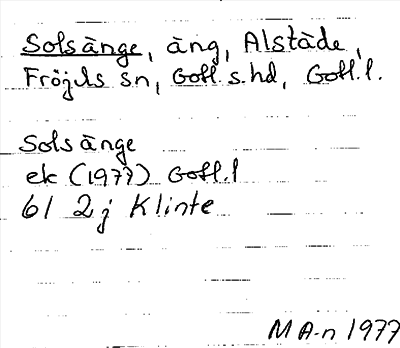 Solsänge, äng, Alstäde,
Fröjels sn, Gotl. s. hd, Gotl. l.
Solsänge
ek (1977) Gotl. l
6I 2j Klinte
M A-n 1977